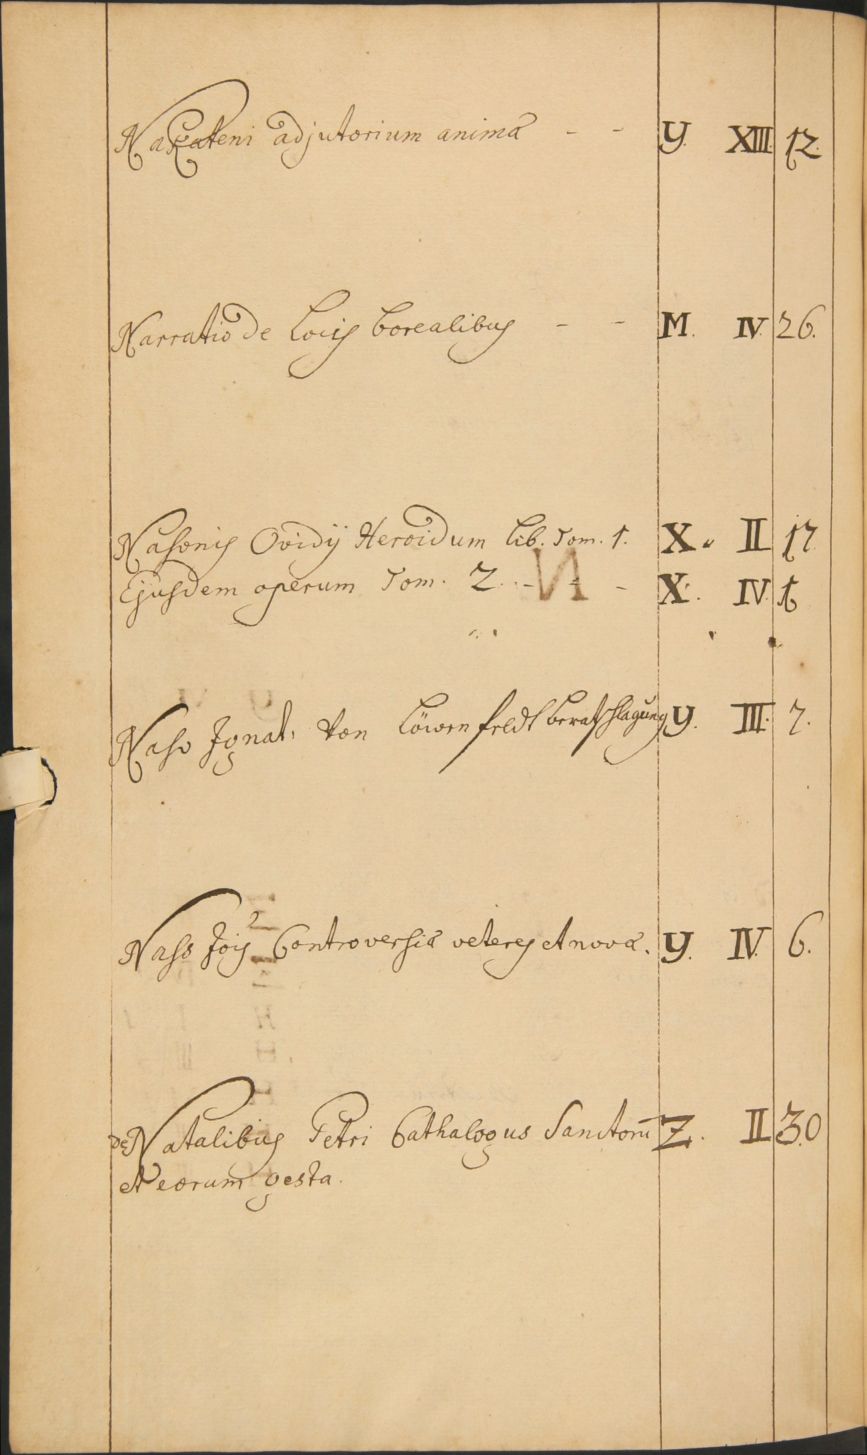 Nakateni adjutorium animæ - - Y. XIII. 12.
Narratio de Locis borealibus - - M. IV. 26.
Nasonis Ovidij Heroidum Lib. Tom. 1. X. II 17
Ejusdem operum Tom. 2. - - - X. IV. 1
Naso Ignat. von Löwenfeldt beratschlagung Y. III. 7.
Nass Jois Controversiæ veteres et novæ. Y. IV. 6.
de Natalibus Petri Cathalogus Sanctorū Z. II 30
et eorum gesta.